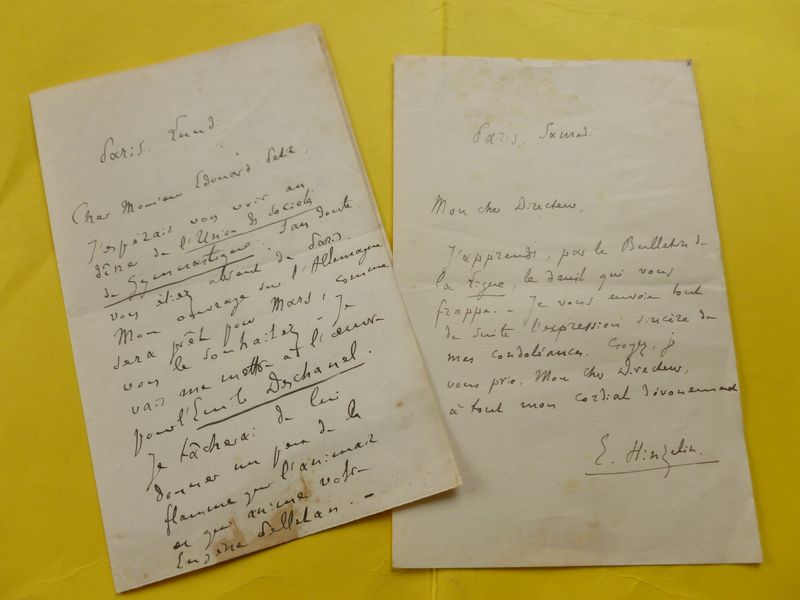 Paris. Lundi.
Cher Monsieur Edouard Petit,
J'espérais vous voir au
dîner de l'Union des Sociétés
de Gymnastique. Sans doute
vous étiez absent de Paris.
Mon ouvrage sur l'Allemagne
sera prêt pour Mars, comme
vous le souhaitez. Je
vais me mettre à l'œuvre
pour l'Emile Deschanel.
Je tâcherai de lui
donner un peu de la
flamme qui l'animait
et qui anime votre
Eugène Pelletan. —
Paris. Samedi
Mon cher Directeur,
J'apprends, par le Bulletin de
la Ligue, le deuil qui vous
frappe. — Je vous envoie tout
de suite l'expression sincère de
mes condoléances. Croyez, je
vous prie, Mon cher Directeur,
à tout mon cordial dévouement
E. Hinzelin.